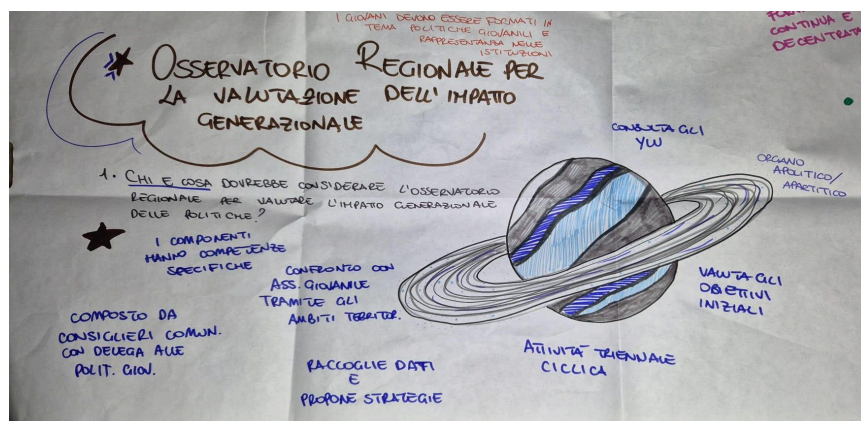 I GIOVANI DEVONO ESSERE FORMATI IN
TEMA POLITICHE GIOVANILI E
RAPPRESENTANZA NELLE
ISTITUZIONI
CONTINUA E
DECENTRATA
OSSERVATORIO REGIONALE PER
LA VALUTAZIONE DELL'IMPATTO
GENERAZIONALE
1. CHI E COSA DOVREBBE CONSIDERARE L'OSSERVATORIO
REGIONALE PER VALUTARE L'IMPATTO GENERAZIONALE
DELLE POLITICHE?
I COMPONENTI
HANNO COMPETENZE
SPECIFICHE
COMPOSTO DA
CONSIGLIERI COMUN.
CON DELEGA ALLE
POLIT. GIOV.
CONFRONTO CON
ASS. GIOVANILE
TRAMITE GLI
AMBITI TERRITOR.
RACCOGLIE DATI
E
PROPONE STRATEGIE
CONSULTA GLI
YW
ORGANO
APOLITICO/
APARTITICO
VALUTA GLI
OBIETTIVI
INIZIALI
ATTIVITÀ TRIENNALE
CICLICA